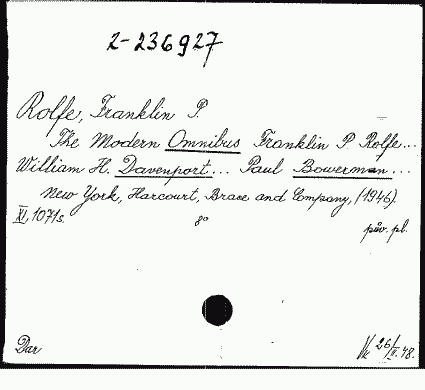 2-236927
Rolfe, Franklin P.
The Modern Omnibus Franklin P Rolfe...
William H. Davenport... Paul Bowerman...
New York, Harcourt, Brace and Company, (1946).
XI, 1071s. 8° pův. pl.
Dar 26/II.48.